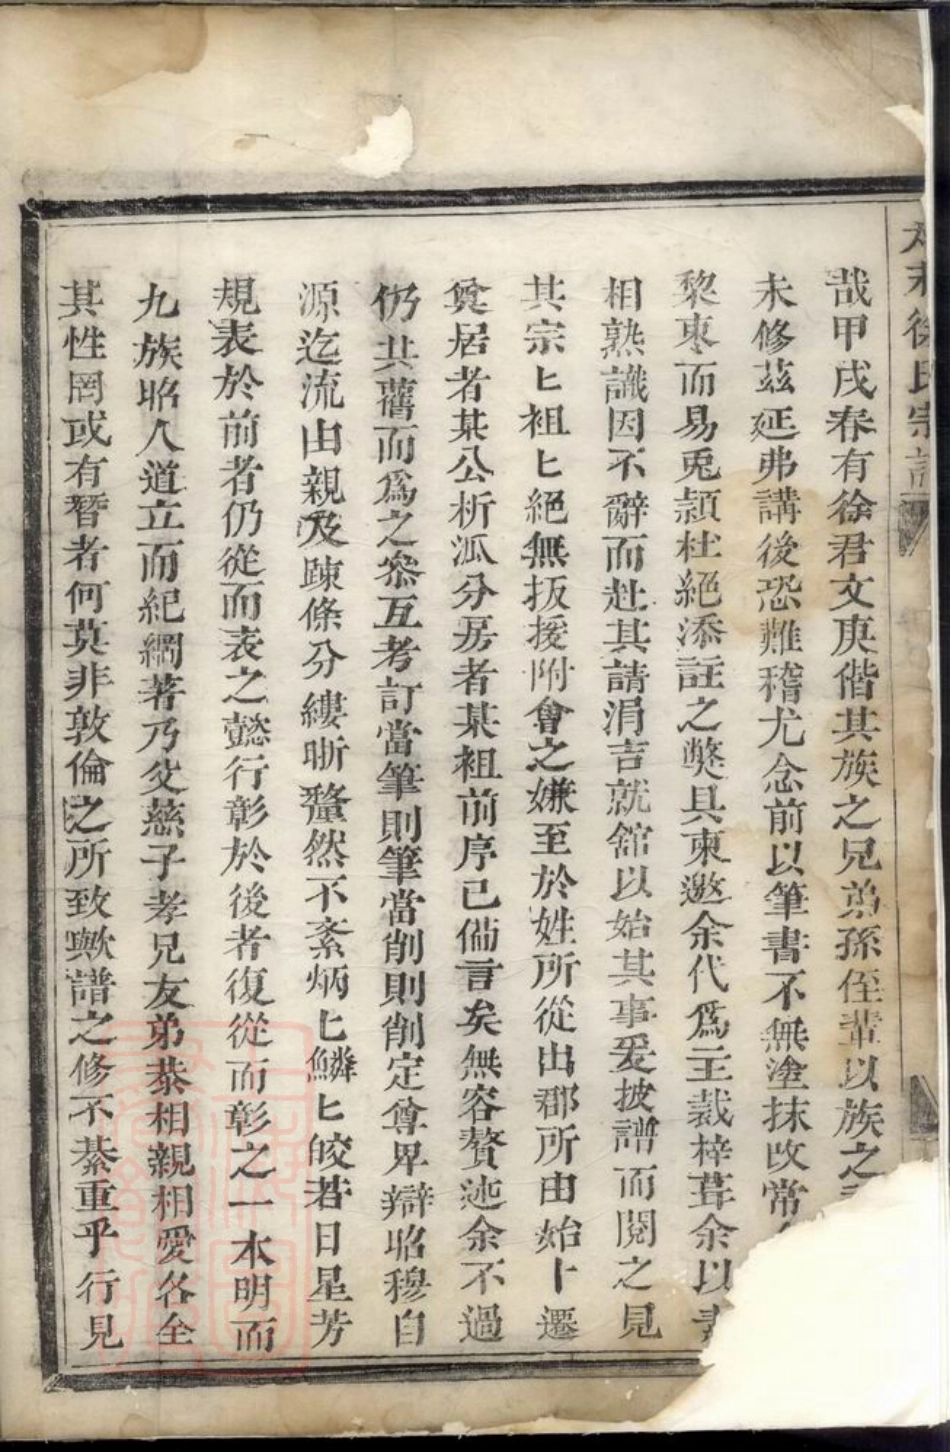 徐氏宗譜
哉甲戌春有徐君文庚偕其族之兄弟孫侄輩以族之
未修茲延弗講後恐難稽尤念前以筆書不無塗抹改常
黎棗而易兎頴杜絕添註之獘具柬邀余代爲主裁梓葺余以
相熟識因不辭而赴其請涓吉就舘以始其事爰披譜而閱之見
其宗匕祖匕絕無扳援附會之嫌至於姓所從出郡所由始卜遷
奠居者某公析派分房者某祖前序已偹言矣無容贅述余不過
仍其舊而爲之叅互考訂當筆則筆當削則削定尊卑辯昭穆自
源迄流由親及踈條分縷晰釐然不紊炳匕鱗匕皎若日星芳
規表於前者仍從而表之懿行彰於後者復從而彰之一本明而
九族昭人道立而紀綱著乃父慈子孝兄友弟恭相親相愛各全
其性罔或有暋者何莫非敦倫之所致歟譜之修不綦重乎行見